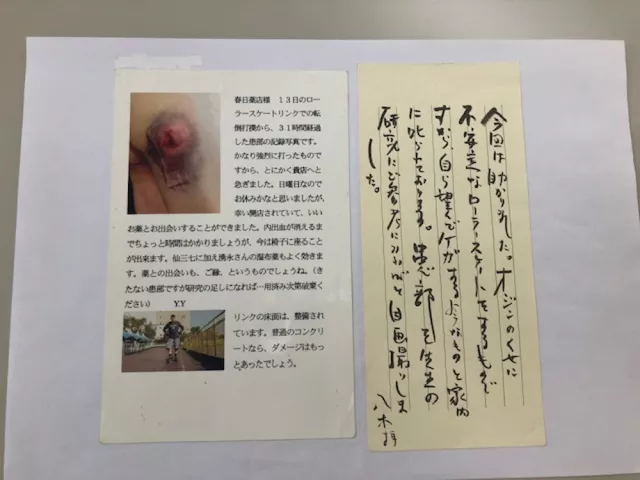 春日薬店様　１３日のロー
ラースケートリンクでの転
倒打撲から、３１時間経過
した患部の記録写真です。
かなり強烈に打ったもので
すから、とにかく貴店へと
急ぎました。日曜日なので
お休みかなと思いましたが、
幸い開店されていて、いい
お薬とお出会いすることができました。内出血が消えるま
でちょっと時間はかかりましょうが、今は椅子に座ること
が出来ます。仙三七に加え湧永さんの湿布薬もよく効きま
す。薬との出会いも、ご縁、というものでしょうね。（き
たない患部ですが研究の足しになれば…用済み次第破棄く
ださい）　　Y.Y
リンクの床面は、整備され
ています。普通のコンクリ
ートなら、ダメージはもっ
とあったでしょう。
今回は助かりました。オジンのくせに
不安定なローラースケートをするもので
すから、自ら望んでケガするようなものと家内
に叱られております。患部を先生の
研究にご参考になればと自画撮りしま
した。
八木